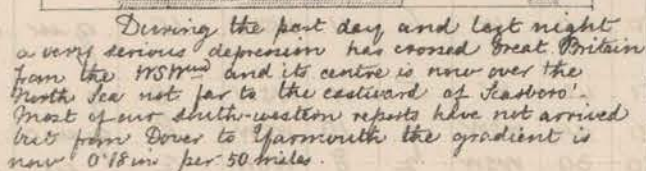 During the past day and last night
a very serious depression has crossed Great Britain
from the WSWwd and its centre is now over the
North Sea not far to the eastward of Scarboro'.
Most of our south-western reports have not arrived
but from Dover to Yarmouth the gradient is
now 0.18 in per 50 miles.